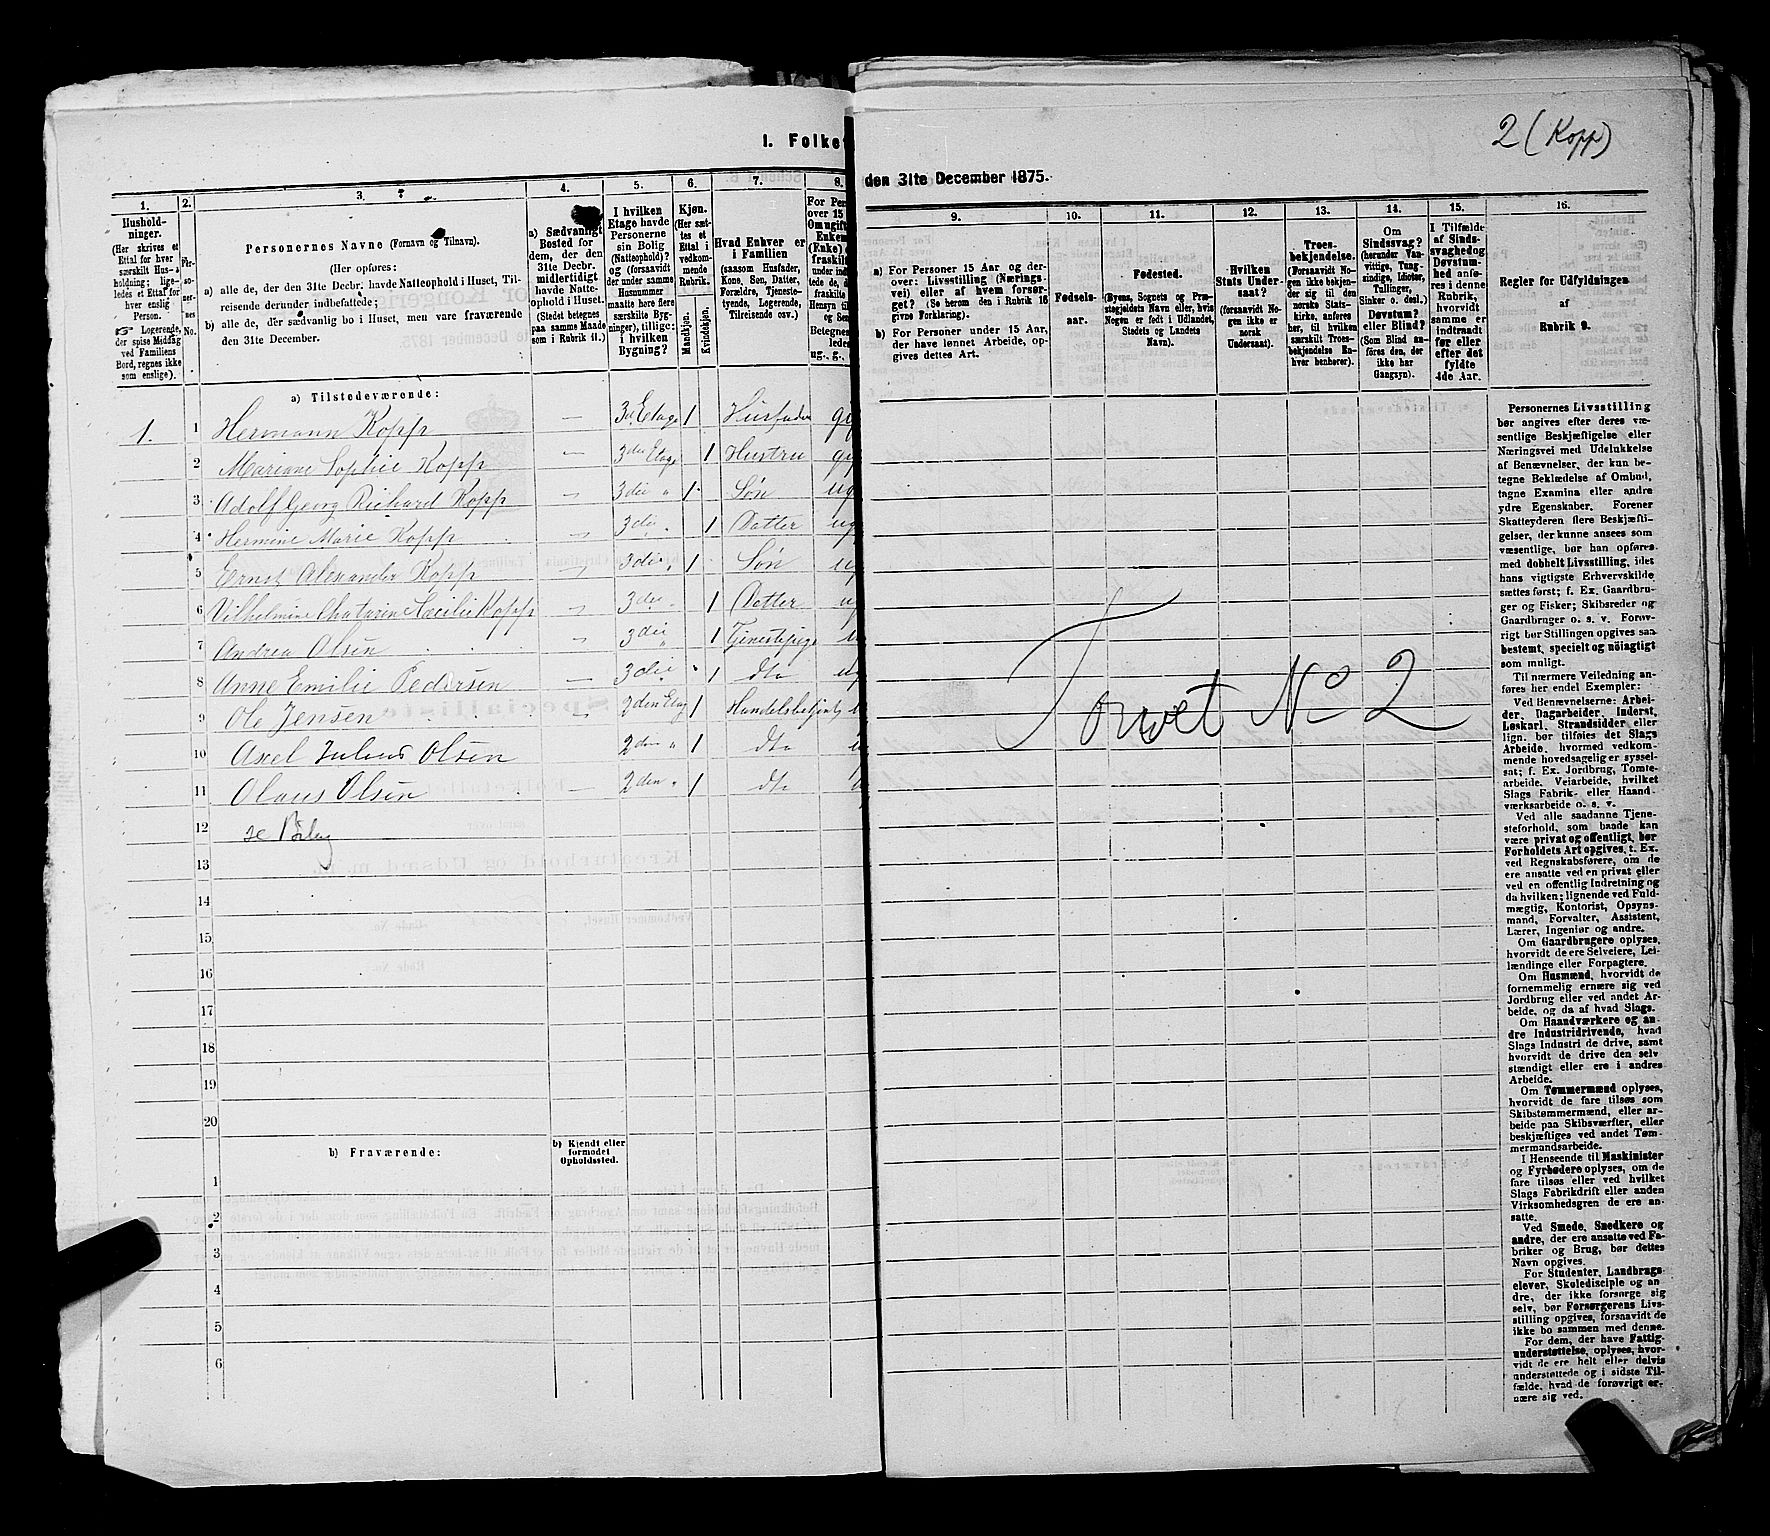 I. Folket
1. 2. 3. 4. 5. 6. 7. 8.
Hushold-
ninger.
(Her skrives et
Ettal for hver
særskilt Hus-
holdning; lige-
ledes et Ettal for
hver enslig
Person.
☞ Logerende,
der spise Middag
ved Familiens
Bord, regnes ikke
som enslige).
Per-
so-
ner-
nes
No.
Personernes Navne (Fornavn og Tilnavn).
(Her opføres:
a) alle de, der den 31te Decbr. havde Natteophold i Huset, Til-
reisende derunder indbefattede;
b) alle de, der sædvanlig bo i Huset, men vare fraværende
den 31te December.
a) Sædvanligt
Bosted for
dem, der den
31te Decbr.
midlertidigt
havde Natte-
ophold i Huset.
(Stedet betegnes
paa samme Maade
som i Rubrik 11.)
I hvilken
Etage havde
Personerne
sin Bolig
(Natteophold)?
og (forsaavidt
der under samme
Husnummer
maatte høre flere
særskilte Byg-
ninger), tillige:
i hvilken
Bygning?
Kjøn.
(Her sæt-
tes et
Ettal i
vedkom-
mende
Rubrik.
Mandkjøn.
Kvindekjøn.
Hvad Enhver er
i Familien
(saasom Husfader,
Kone, Søn, Datter,
Forældre, Tjeneste-
tyende, Logerende,
Tilreisende osv.)
For Per
over 15
Omgift
Enkem
(Enke)
fraskilt
under ind
tede de, d
fraskilte
Hensyn
og Sen
Betegnes
lede
ug., g.,
a) Tilstedeværende:
1. 1 Hermann Kopp — 3die Etage 1 Husfader
2 Mariane Sophie Kopp — 3die Etage 1 Hustru
3 Adolf Georg Richard Kopp — 3die „ 1 Søn ug
4 Hermine Marie Kopp — 3die „ 1 Datter ug
5 Ernst Alexander Kopp — 3die „ 1 Søn
6 Vilhelmine Cecilie Kopp — 3die „ 1 Datter
7 Andrea Olsen — 3die „ 1 Tjenestepige
8 Anne Emilie Pedersen — 3die „ 1 dto
9 Ole Jensen — 2den Etag 1 Handelsbetjent
10 Axel Julius Olsen 2den „ 1 dto
11 Olaus Olsen — 2den „ 1 dto
12 se
13
14
15
16
17
18
19
20
b) Fraværende:
b) Kjendt eller
formodet
Opholdssted.
1
2
3
4
5
6
2 (Kopp)
den 31te December 1875.
9. 10. 11. 12. 13. 14. 15. 16.
a) For Personer 15 Aar og der-
over: Livsstilling (Nærings-
vei) eller af hvem forsør-
get? (Se herom den i Rubrik 16
givne Forklaring).
b) For Personer under 15 Aar,
der have lønnet Arbeide, op-
gives dettes Art.
Fødsels-
aar.
Fødested.
(Byens, Sognets og Præ-
stegjeldets Navn eller, hvis
Nogen er født i Udlandet,
Stedets og Landets
Navn).
Hvilken
Stats Under-
saat?
(forsaavidt No-
gen ikke er
norsk
Undersaat).
Troes-
bekjendelse.
(Forsaavidt No-
gen ikke bekjen-
der sig til den
norske Stats-
kirke, anføres
her, til hvilken
særskilt Troes-
bekjendelse En-
hver henhører).
Om
Sindssvag?
(herunder Van-
vittige, Tung-
sindige, Idioter,
Tullinger,
Sinker o. desl.)
Døvstum?
eller Blind?
(Som Blind an-
føres den, der
ikke har
Gangsyn).
I Tilfælde
af Sinds-
svaghed og
Døvstum-
hed anfø-
res i denne
Rubrik,
hvorvidt
samme er
indtraadt
før eller
efter det
fyldte
4de Aar.
Regler for Udfyldningen
af
Rubrik 9.
Torvet No 2
Personernes Livsstilling
bør angives efter deres væ-
sentlige Beskjæftigelse eller
Næringsvei med Udelukkelse
af Benævnelser, der kun be-
tegne Beklædelse af Ombud,
tagne Examina eller andre
ydre Egenskaber. Forener
Skatteyderen flere Beskjæfti-
gelser, der kunne ansees som
væsentlige, bør han opføres
med dobbelt Livsstilling, idet
hans vigtigste Erhvervskilde
sættes først; f. Ex. Gaardbru-
ger og Fisker; Skibsreder og
Gaardbruger o. s. v. Forøv-
rigt bør Stillingen opgives saa
bestemt, specielt og nöiagtigt
som muligt.
Til nærmere Veiledning an-
føres her endel Exempler:
Ved Benævnelserne: Arbei-
der, Dagarbeider, Inderst,
Løskarl, Strandsidder eller
lign. bør tilføies det Slags
Arbeide, hvormed vedkom-
mende hovedsagelig er syssel-
sat; f. Ex. Jordbrug, Tomte-
arbeide, Veiarbeide, hvilket
Slags Fabrik- eller Haand-
værksarbeide o. s. v.
Ved alle saadanne Tjene-
steforhold, som baade kan
være privat og offentligt, bør
Forholdets Art opgives, t. Ex.
ved Regnskabsførere, om de
ere ansatte ved en privat eller
ved en offentlig Indretning og
da hvilken; lignende ved Fuld-
mægtig, Kontorist, Opsyns-
mand, Forvalter, Assistent,
Lærer, Ingeniør og andre.
Om Gaardbrugere oplyses,
hvorvidt de ere Selveiere, Lei-
lændinge eller Forpagtere.
Om Husmænd, hvorvidt de
fornemmelig ernære sig ved
Jordbrug eller ved andet Ar-
beide, og da af hvad Slags.
Om Haandværkere og an-
dre Industridrivende, hvad
Slags Industri de drive, samt
hvorvidt de drive den selv-
stændigt eller ere i andres
Arbeide.
Om Tømmermænd oplyses,
hvorvidt de fare tilsøs som
Skibstømmermænd, eller ar-
beide paa Skibsværfter, eller
beskjæftiges ved andet Tøm-
mermandsarbeide.
I Henseende til Maskinister
og Fyrbødere oplyses, om de
fare tilsøs eller ved hvilket
Slags Fabrikdrift eller anden
Virksomhedsgren de ere an-
satte.
Ved Smede, Snedkere og
andre, der ere ansatte ved Fa-
briker og Brug, bør dettes
Navn opgives.
For Studenter, Landbrugs-
elever, Skoledisciple og an-
dre, der ikke forsørge sig
selv, bør Forsørgerens Livs-
stilling opgives, forsaavidt de
ikke bo sammen med denne.
For dem, der have Fattig-
understøttelse, oplyses, hvor-
vidt de ere helt eller delvis
understøttede og i sidste Til-
fælde, hvad de forøvrigt er-
nære sig ved.